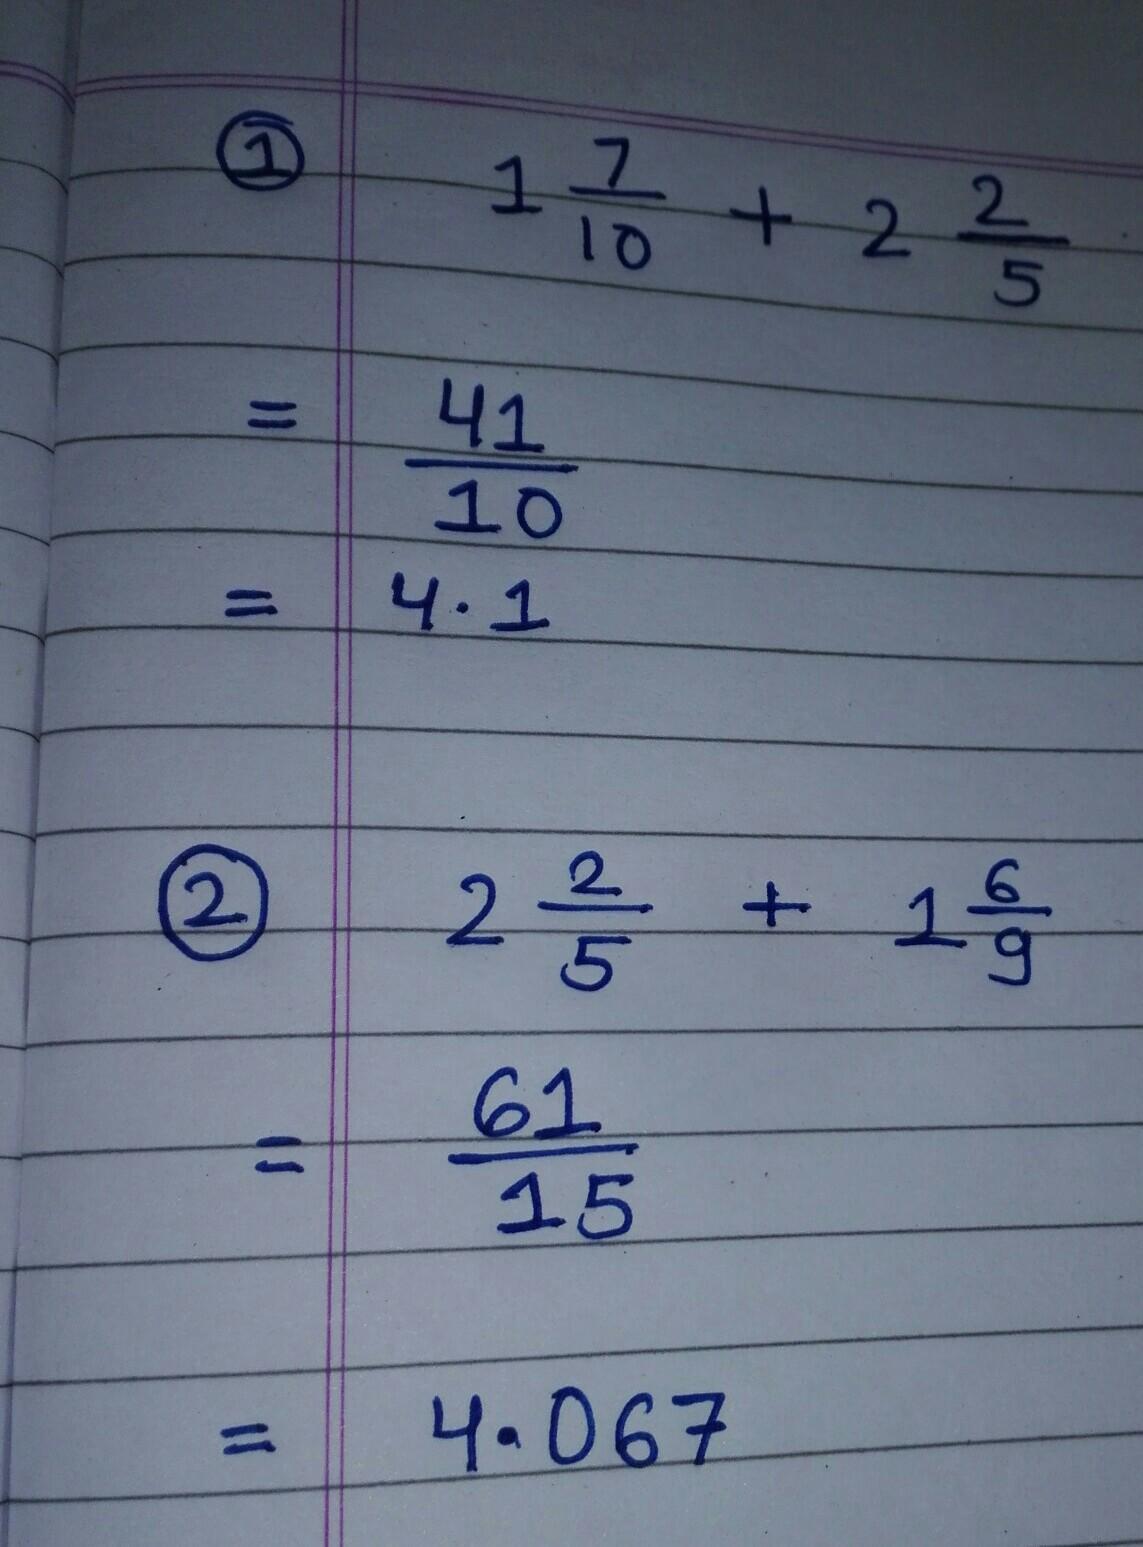 ① 1 7/10 + 2 2/5
= 41/10
= 4.1
② 2 2/5 + 1 6/9
= 61/15
= 4.067